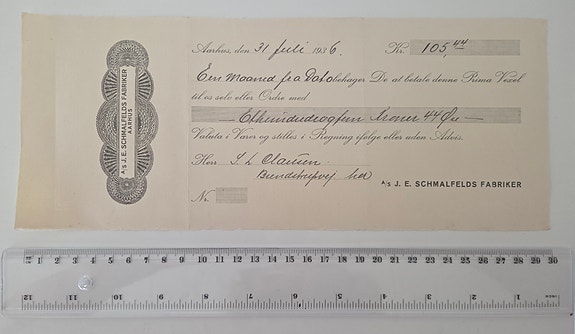 A/S J. E. SCHMALFELDS FABRIKER
AARHUS
Aarhus, den 31 Juli 1936. Kr. 105,44
Een Maaned fra Dato behager De at betale denne Prima Vexel
til os selv eller Ordre med
Ethundredeogfem Kroner 44 Øre
Valuta i Varer og stilles i Regning ifølge eller uden Advis.
Herr J. L. Clausen
A/S J. E. SCHMALFELDS FABRIKER
Nr.
1 2 3 4 5 6 7 8 9 10 11 12 13 14 15 16 17 18 19 20 21 22 23 24 25 26 27 28 29 30
12 11 10 9 8 7 6 5 4 3 2 1